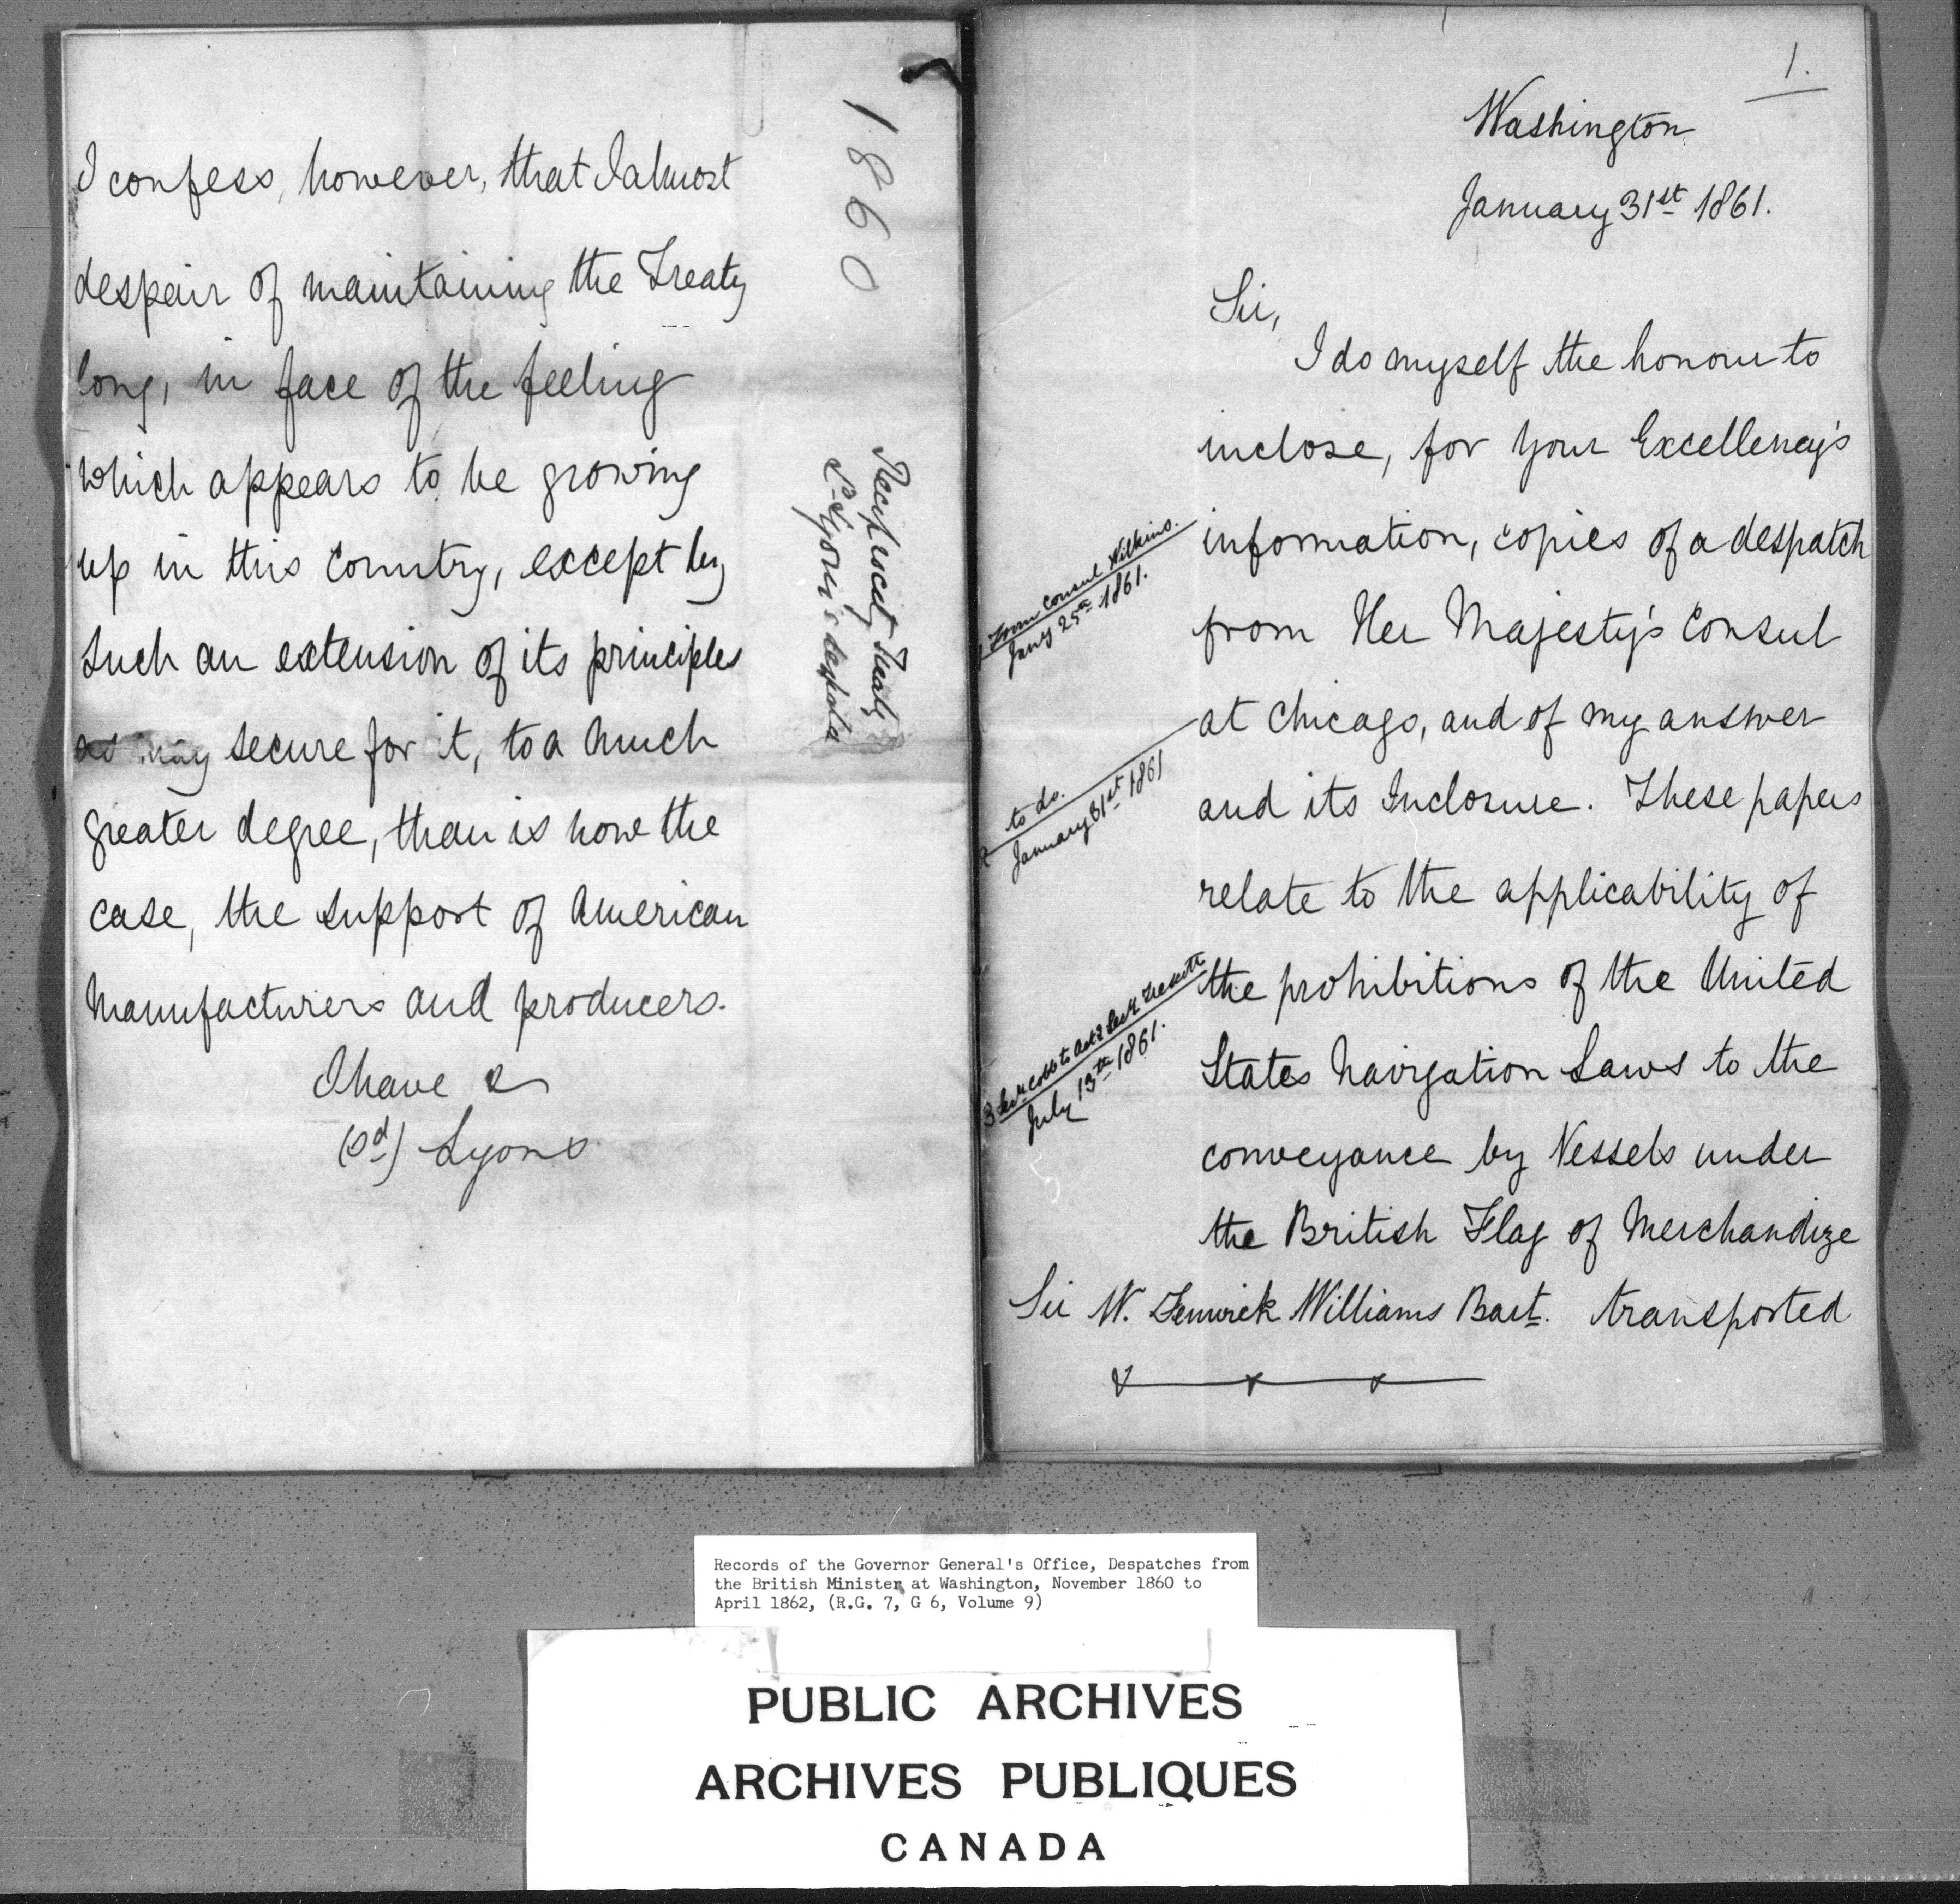 I confess, however, that I almost
despair of maintaining the Treaty
long, in face of the feeling
which appears to be growing
up in this Country, except by
such an extension of its principles
as may secure for it, to a much
greater degree, than is now the
case, the support of American
Manufacturers and producers.
I have &
(sd) Lyons
1860
Reciprocity Treaty
Ld Lyons's
1.
Washington
January 31st 1861.
Sir,
I do myself the honour to
inclose, for Your Excellency's
information, copies of a despatch
from Her Majesty's Consul
at Chicago, and of my answer
and its Inclosure. These papers
relate to the applicability of
the prohibitions of the United
States Navigation Laws to the
conveyance by Vessels under
the British Flag of Merchandize
transported
1 From Consul Wilkins.
Jany 25th 1861.
2 to do.
January 31st 1861
3 Secy Cobb to Actg Secy Trescott
July 13th 1861.
Sir W. Fenwick Williams Bart.
Records of the Governor General's Office, Despatches from
the British Minister at Washington, November 1860 to
April 1862, (R.G. 7, G 6, Volume 9)
PUBLIC ARCHIVES
ARCHIVES PUBLIQUES
CANADA